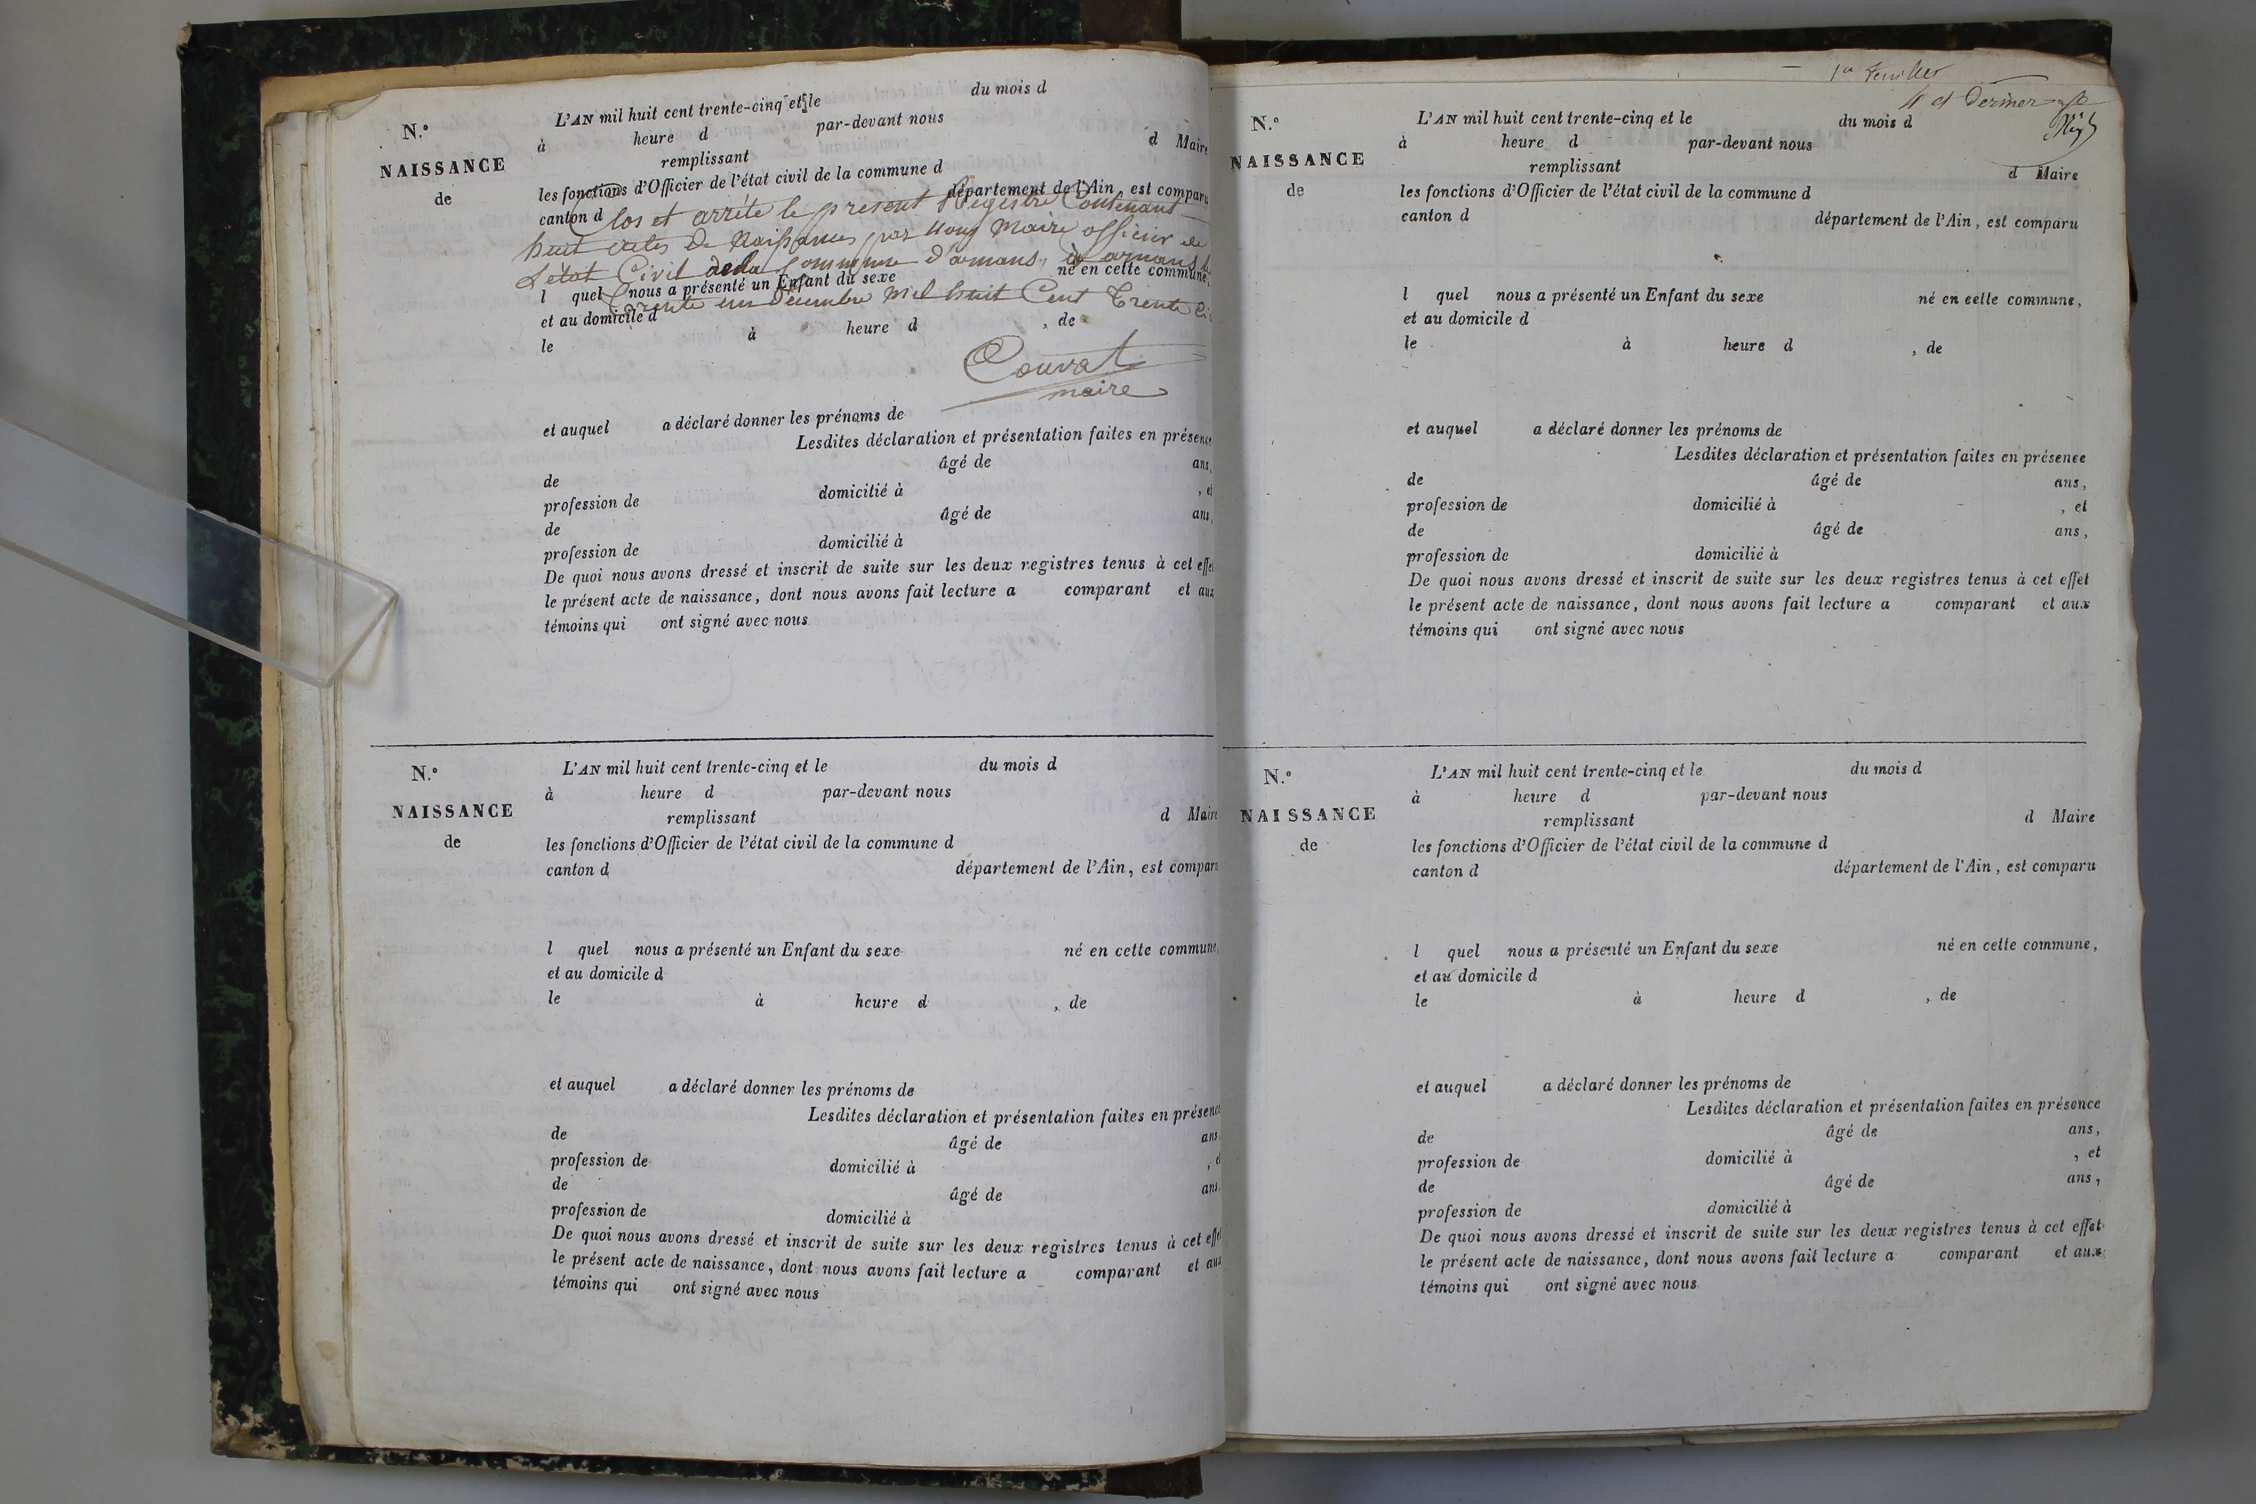 N.° L'AN mil huit cent trente-cinq et le du mois d
à heure d par-devant nous
NAISSANCE remplissant d Maire
de les fonctions d'Officier de l'état civil de la commune d
canton d département de l'Ain, est comparu
Clos et arrété le présent Régistre Contenant
huit actes de Naissances par Nous Maire officier de
L'état Civil dela Commune d'armans, à armans le
l quel nous a présenté un Enfant du sexe né en cette commune,
trente un Décembre Mil huit Cent Trente Ci
et au domicile d
le à heure d , de
Couvat
maire
et auquel a déclaré donner les prénoms de
Lesdites déclaration et présentation faites en présence
de âgé de ans,
profession de domicilié à , et
de âgé de ans,
profession de domicilié à
De quoi nous avons dressé et inscrit de suite sur les deux registres tenus à cet effet
le présent acte de naissance, dont nous avons fait lecture a comparant et aux
témoins qui ont signé avec nous
N.° L'AN mil huit cent trente-cinq et le du mois d
à heure d par-devant nous
NAISSANCE remplissant d Maire
de les fonctions d'Officier de l'état civil de la commune d
canton d département de l'Ain, est comparu
l quel nous a présenté un Enfant du sexe né en cette commune,
et au domicile d
le à heure d , de
et auquel a déclaré donner les prénoms de
Lesdites déclaration et présentation faites en présence
de âgé de ans,
profession de domicilié à , et
de âgé de ans,
profession de domicilié à
De quoi nous avons dressé et inscrit de suite sur les deux registres tenus à cet effet
le présent acte de naissance, dont nous avons fait lecture a comparant et aux
témoins qui ont signé avec nous
feuillet
4 et dernier
N.° L'AN mil huit cent trente-cinq et le du mois d
à heure d par-devant nous
NAISSANCE remplissant d Maire
de les fonctions d'Officier de l'état civil de la commune d
canton d département de l'Ain, est comparu
l quel nous a présenté un Enfant du sexe né en cette commune,
et au domicile d
le à heure d , de
et auquel a déclaré donner les prénoms de
Lesdites déclaration et présentation faites en présence
de âgé de ans,
profession de domicilié à , et
de âgé de ans,
profession de domicilié à
De quoi nous avons dressé et inscrit de suite sur les deux registres tenus à cet effet
le présent acte de naissance, dont nous avons fait lecture a comparant et aux
témoins qui ont signé avec nous
N.° L'AN mil huit cent trente-cinq et le du mois d
à heure d par-devant nous
NAISSANCE remplissant d Maire
de les fonctions d'Officier de l'état civil de la commune d
canton d département de l'Ain, est comparu
l quel nous a présenté un Enfant du sexe né en cette commune,
et au domicile d
le à heure d , de
et auquel a déclaré donner les prénoms de
Lesdites déclaration et présentation faites en présence
de âgé de ans,
profession de domicilié à , et
de âgé de ans,
profession de domicilié à
De quoi nous avons dressé et inscrit de suite sur les deux registres tenus à cet effet
le présent acte de naissance, dont nous avons fait lecture a comparant et aux
témoins qui ont signé avec nous